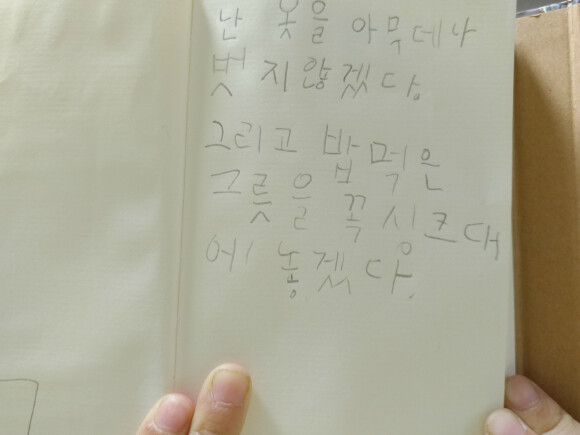 난 옷을 아무데나
벗지않겠다.
그리고 밥먹은
그릇을 꼭 싱크대
에 놓겠다.